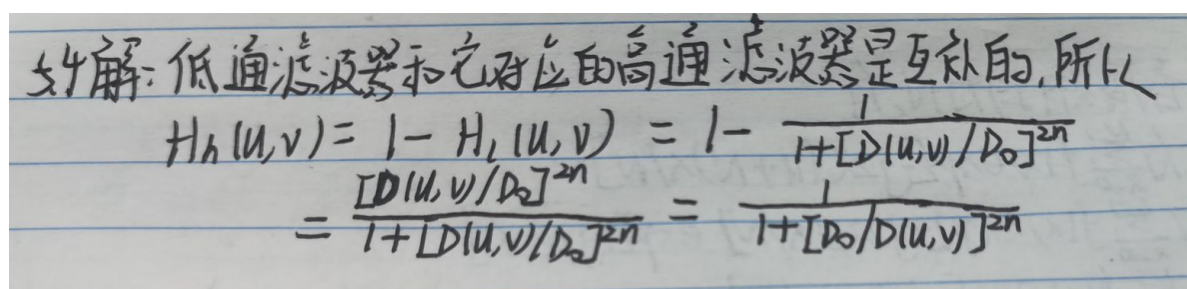 5.4 解: 低通滤波器和它对应的高通滤波器是互补的,所以
H_h(u,v) = 1 - H_l(u,v) = 1 - \frac{1}{1+[D(u,v)/D_0]^{2n}}
= \frac{[D(u,v)/D_0]^{2n}}{1+[D(u,v)/D_0]^{2n}} = \frac{1}{1+[D_0/D(u,v)]^{2n}}